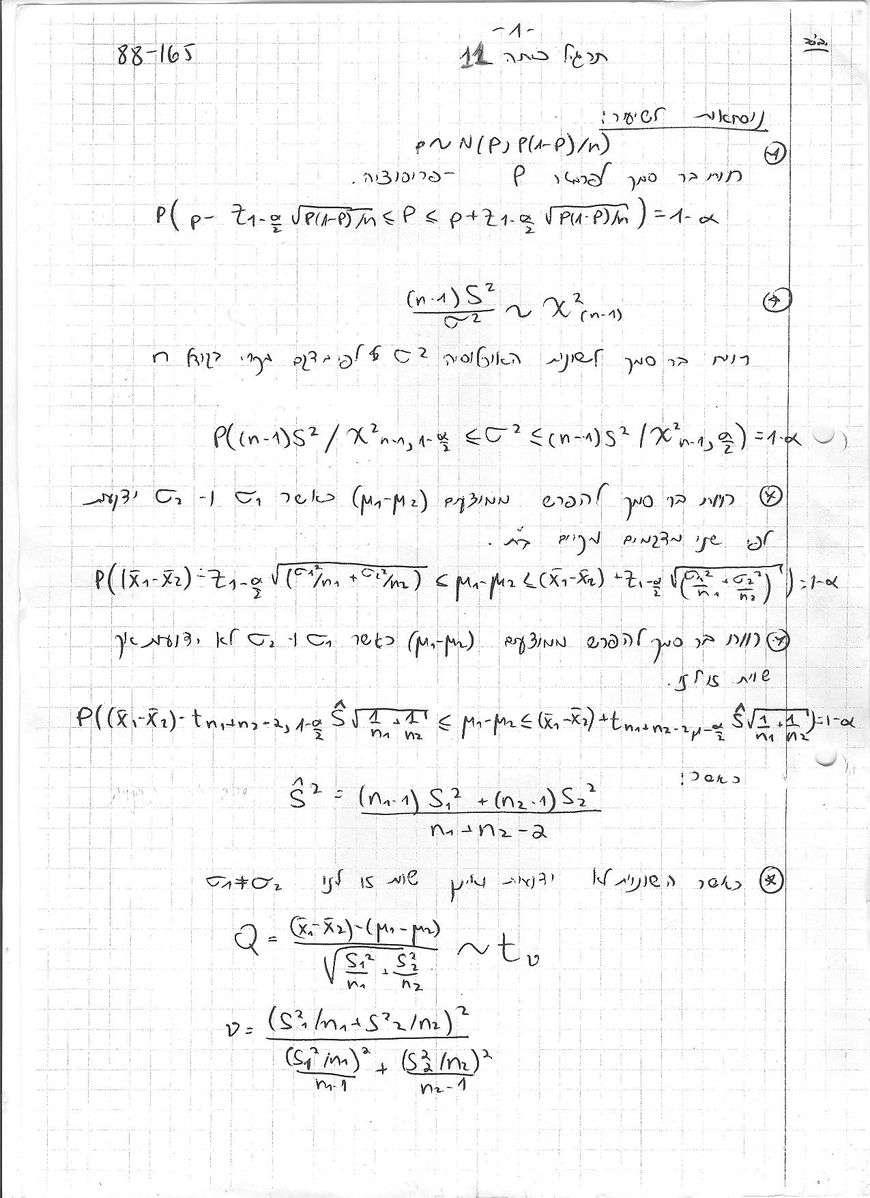 -1-
ב"ה
88-165
תרגיל כיתה 11
נוסחאות לשיעור:
p~N(P, P(1-P)/n)
רווח בר סמך לפרמטר P - פרופורציה.
P(p - z₁₋α/₂ √P(1-P)/n ≤ P ≤ p + z₁₋α/₂ √P(1-P)/n) = 1-α
(n-1)S²/σ² ~ χ²(n-1)
רווח בר סמך לשונות האוכלוסיה σ² לפי מדגם מקרי בגודל n
P((n-1)S² / χ²n-1, 1-α/2 ≤ σ² ≤ (n-1)S² / χ²n-1, α/2) = 1-α
רווח בר סמך להפרש ממוצעים (μ₁-μ₂) כאשר σ₁ ו- σ₂ ידועות
לפי שני מדגמים מקריים ב"ת.
P((x̄₁-x̄₂) - z₁₋α/₂ √(σ₁²/n₁ + σ₂²/n₂) ≤ μ₁-μ₂ ≤ (x̄₁-x̄₂) + z₁₋α/₂ √(σ₁²/n₁ + σ₂²/n₂)) = 1-α
רווח בר סמך להפרש ממוצעים (μ₁-μ₂) כאשר σ₁ ו- σ₂ לא ידועות אך
שוות זו לזו.
P((x̄₁-x̄₂) - t n₁+n₂-2, 1-α/2 Ŝ √1/n₁ + 1/n₂ ≤ μ₁-μ₂ ≤ (x̄₁-x̄₂) + t n₁+n₂-2, 1-α/2 Ŝ √1/n₁ + 1/n₂) = 1-α
כאשר:
Ŝ² = (n₁-1)S₁² + (n₂-1)S₂² / n₁+n₂-2
כאשר השונויות לא ידועות ואינן שוות זו לזו σ₁≠σ₂
Q = (x̄₁-x̄₂)-(μ₁-μ₂) / √S₁²/n₁ + S₂²/n₂ ~ tν
ν = (S₁²/n₁ + S₂²/n₂)² / (S₁²/n₁)²/n₁-1 + (S₂²/n₂)²/n₂-1